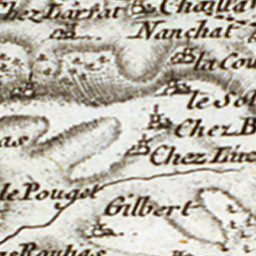 Chez Larfat
Nanchat
la Cou
le Sol
Chez B
Chez Luc
le Pouget
Gilbert